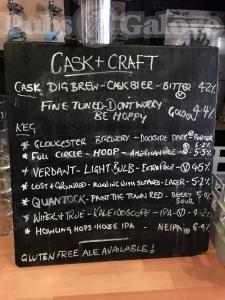 Pubs Galore
CASK + CRAFT
CASK DIG BREW - CASK BIER - BITTER V 4.2%
FINE TUNED - DONT WORRY
BE HOPPY GOLDEN 4.4%
KEG
* GLOUCESTER BREWERY - DOCKSIDE DARK - PORTER
* FULL CIRCLE - HOOP - AMERICAN PALE 5.5%
* VERDANT - LIGHT BULB - EXTRA PALE V 4.5%
* LOST + GROUNDED - RUNNING WITH - LAGER - 5.2%
* QUANTOCK - PAINT THE TOWN RED - BERRY SOUR 5.0%
* WIPER + TRUE - KALEIDOSCOPE - IPA - V - 4.2%
* HOWLING HOPS - HOUSE IPA NEIPA 6.9%
GLUTEN FREE ALE AVAILABLE!